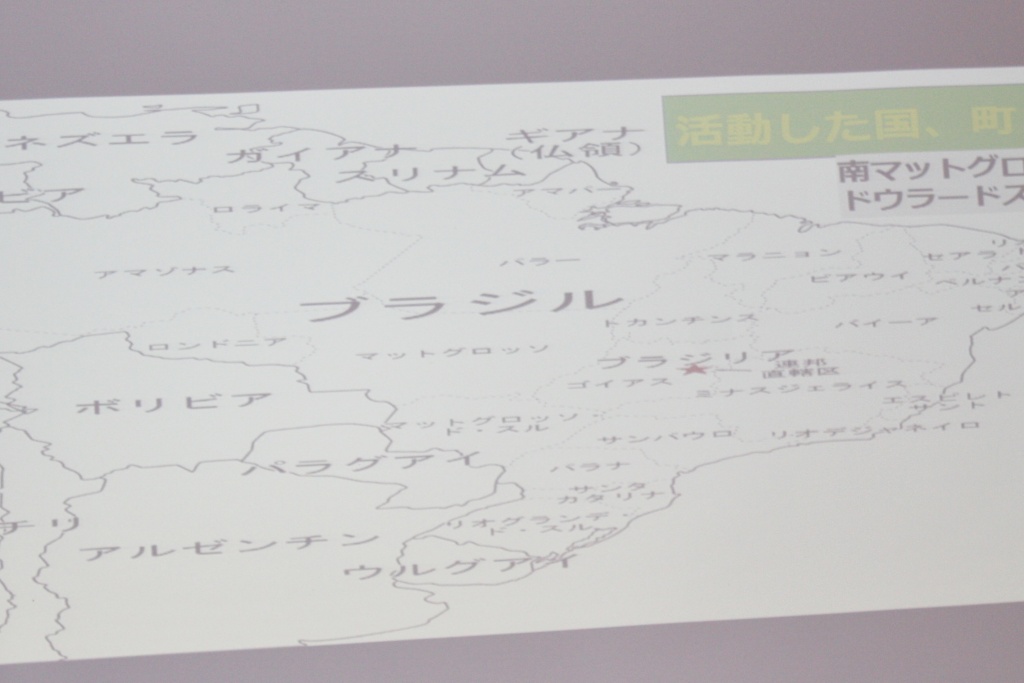 活動した国、町
南マットグロ
ドウラードス
ネズエラ
ガイアナ
ギアナ
(仏領)
スリナム
ビア
アマパー
ロライマ
アマゾナス
パラー
マラニョン
セアラ
ピアウイ
ペルナン
ブラジル
セル
トカンチンス
バイーア
ロンドニア
マットグロッソ
ブラジリア
連邦
直轄区
ゴイアス
ミナスジェライス
ボリビア
エスピリト
サント
マットグロッソ
ド・スル
サンパウロ
リオデジャネイロ
パラグアイ
パラナ
サンタ
カタリナ
チリ
リオグランデ・
ド・スル
アルゼンチン
ウルグアイ